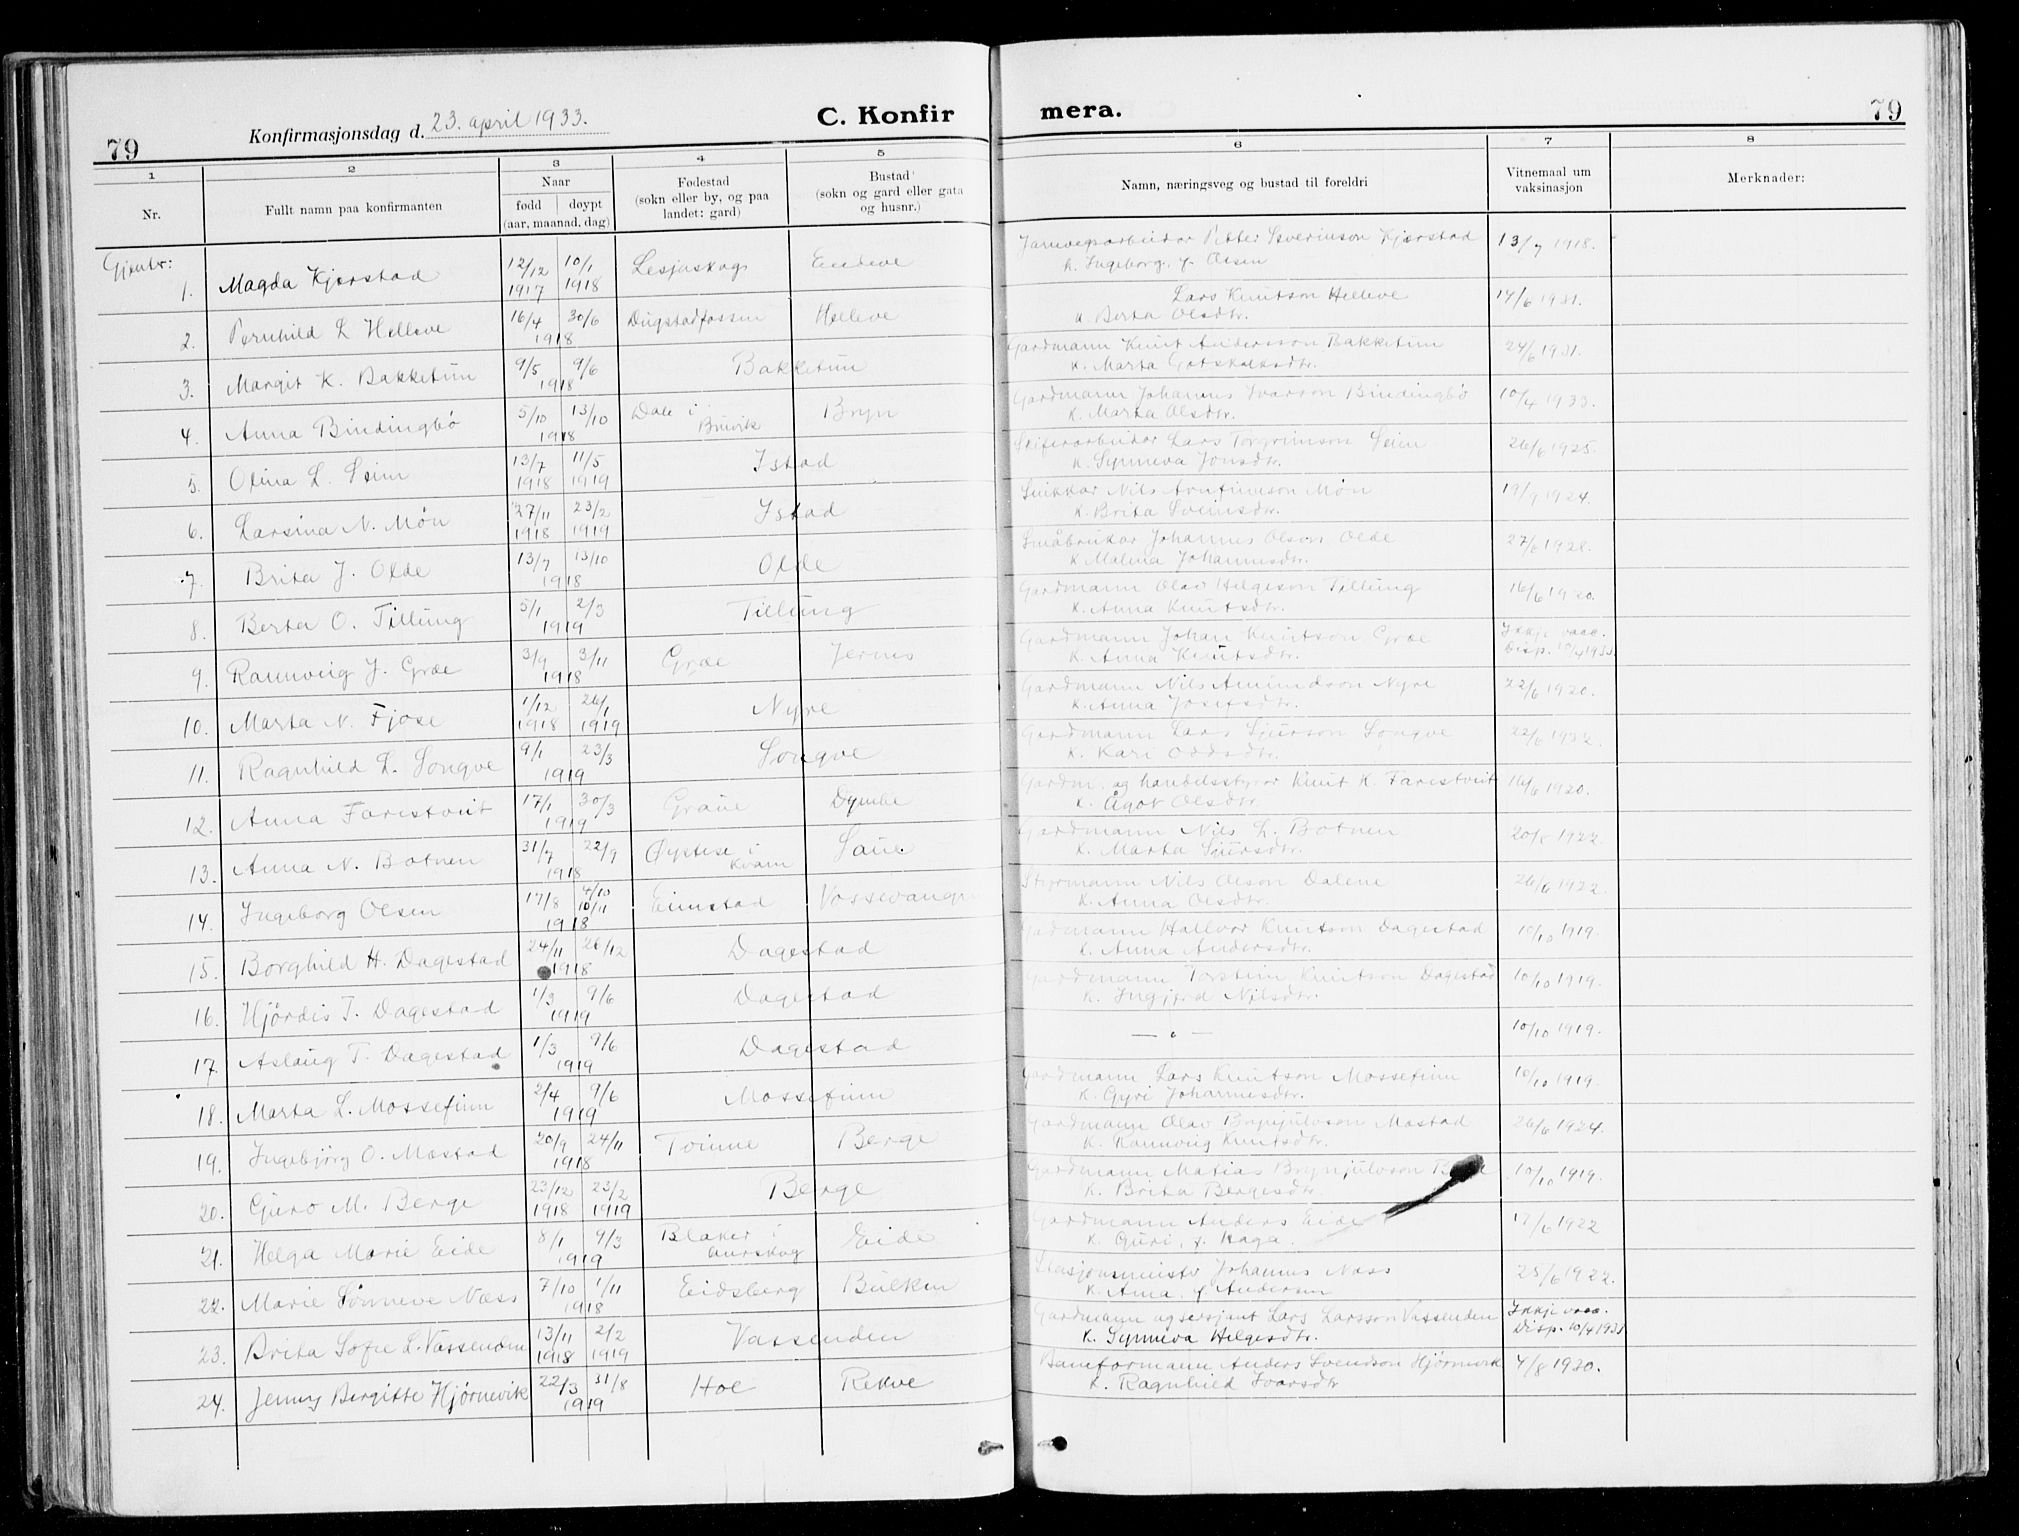 79
Konfirmasjonsdag d. 23. april 1933.
C. Konfirmera.
79
1 2 3 4 5 6 7 8
Nr.
Fullt namn paa konfirmanten
Naar
fødd døypt
(aar, maanad, dag)
Fødestad
(sokn eller by, og paa
landet: gard)
Bustad
(sokn og gard eller gata
og husnr.)
Namn, næringsveg og bustad til foreldri
Vitnemaal um
vaksinasjon
Merknader:
Gjentur:
1. Magda Kjørstad 12/12 1917 10/1 1918 Lesjaskog Endeve Petter Severinson Kjørstad 13/7 1918.
k. Ingeborg, f. Olsen
2. L Helleve 16/4 30/6 1918 Dugstadfossen Helleve Lars Knutson Helleve 14/6 1931.
Berta Olsdtr.
3. Margit K. Bakketun 9/5 9/6 1918 Bakketun Gardmann Knut Andersson Bakketun 24/6 1931.
k. Marta Gotskalksdtr.
4. Anna Bindingbø 5/10 13/10 1918 Dale i Bruvik Bryn Gardmann Johannes Ivarson Bindingbø 10/4 1933.
k. Marta Olsdtr.
5. Olina L. Seim 13/7 1918 11/5 1919 Istad Skiferarbeidar Lars Torgrimson Seim 26/6 1925.
k. Synneva Jonsdtr.
6. Larsina N. Møn 27/11 1918 23/2 1919 Istad Snikkar Nils Arnfinnson Møn 19/9 1924
k. Brita Sveinsdtr.
7. Brita J. Olde 13/7 13/10 1918 Olde Småbrukar Johannes Olson Olde 27/6 1928.
k. Malena Johannesdtr.
8. Berta O. Tillung 5/1 2/3 1919 Tillung Gardmann Olav Helgeson Tillung 16/6 1920.
k. Anna Knutsdtr.
9. Rannveig J. Græe 3/9 3/11 1918 Græe Jernes Gardmann Johan Knutson Græe Ikkje vacc.
k. Anna Knutsdtr. Disp. 10/4 1933
10. Marta N. Fjose 1/12 1918 26/1 1919 Nyre Gardmann Nils Amundson Nyre 22/6 1920.
k. Anna Josefsdtr.
11. Ragnhild L. Songve 9/1 23/3 1919 Songve Gardmann Lars Sjurson Songve 22/6 1932.
k. Kari Oddsdtr.
12. Anna Farestveit 17/1 30/3 1919 Graue Dymbe Gardm. og handelsstyrar Knut K. Farestveit 16/6 1920.
k. Ågot Olsdtr.
13. Anna N. Botnen 31/7 22/9 1918 Øystese i Kvam Saue. Gardmann Nils L. Botnen 20/5 1922.
k. Marta Sjursdtr.
14. Ingeborg Olsen 17/8 4/10 10/11 1918 Eimstad Vossevangen Styrmann Nils Olson Dalene 26/6 1922.
k. Anna Olsdtr.
15. Borghild H. Dagestad 24/11 26/12 1918 Dagestad Gardmann Hallvor Knutson Dagestad 10/10 1919.
k. Anna Andersdtr.
16. Hjördis T. Dagestad 1/3 9/6 1919 Dagestad Gardmann Torstein Knutson Dagestad 10/10 1919.
k. Ingjerd Nilsdtr.
17. Aslaug T. Dagestad 1/3 9/6 1919 Dagestad — " — 10/10 1919.
18. Marta L. Mossefinn 2/4 9/6 1919 Mossefinn Gardmann Lars Knutson Mossefinn 10/10 1919.
k. Gyri Johannesdtr.
19. Ingebjørg O. Mæstad 20/9 24/11 1918 Tvinne Berge Gardmann Olav Brynjulvson Mæstad 26/6 1924.
k. Rannveig Knutsdtr.
20. Guro M. Berge 23/12 1918 23/2 1919 Berge Gardmann Matias Brynjulvson 10/10 1919.
k. Brita Bergesdtr.
21. Helga Marie Eide 8/1 9/3 1919 Blaker i Aurskog Eide Gardmann Anders Eide 17/6 1922
k. Guri, f. Haga.
22. Marie Sønneve Næss 7/10 1/11 1918 Eidsberg Bulken Stasjonsmeister Johannes Næss 25/6 1922.
k. Anna, f. Andersen
23. Brita Sofie L. Vassenden 13/11 1918 2/2 1919 Vassenden Gardmann og sersjant Lars Larsson Vassenden Ikkje vacc.
k. Synneva Helgesdtr. Disp. 10/4 1933
24. Jenny Bergitte Hjørnevik 22/3 31/8 1919 Hoe Rekve Baneformann Anders Svendson Hjørnevik 4/8 1920.
k. Ragnhild Ivarsdtr